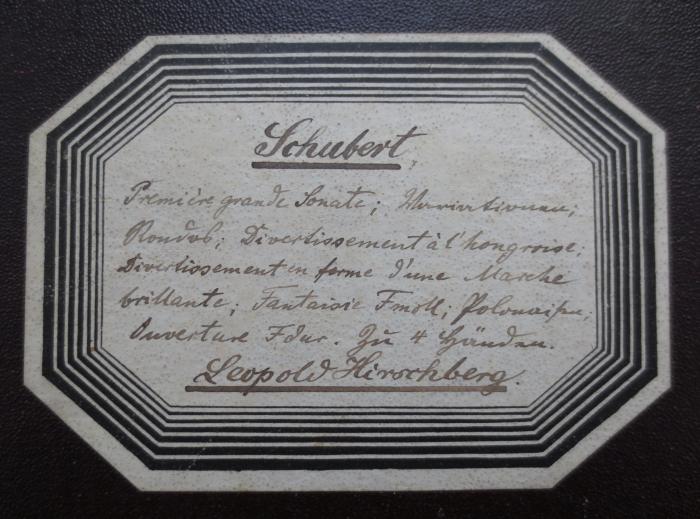 Schubert.
Première grande Sonate; Variationen;
Rondos; Divertissement à l'hongroise;
Divertissement en forme d'une Marche
brillante; Fantaisie Fmoll; Polonaisen;
Ouverture Fdur. Zu 4 Händen.
Leopold Hirschberg.